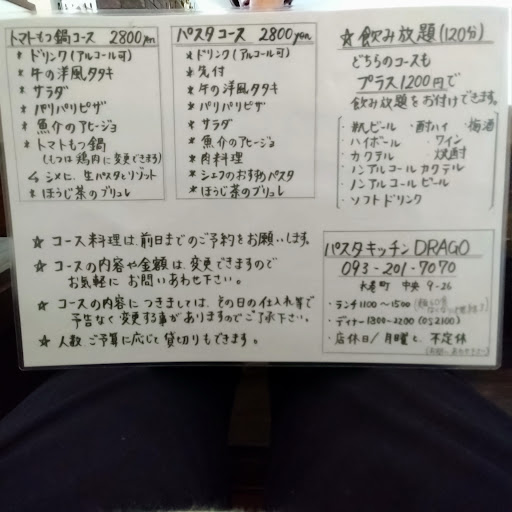 トマトもつ鍋コース 2800yen
* ドリンク(アルコール可)
* 牛の洋風タタキ
* サラダ
* パリパリピザ
* 魚介のアヒージョ
* トマトもつ鍋
(もつは鶏肉に変更できます)
シメに、生パスタとリゾット
* ほうじ茶のブリュレ
パスタコース 2800yen
* ドリンク(アルコール可)
* 先付
* 牛の洋風タタキ
* パリパリピザ
* サラダ
* 魚介のアヒージョ
* 肉料理
* シェフのおすすめパスタ
* ほうじ茶のブリュレ
☆ 飲み放題(120分)
どちらのコースも
プラス1200円で
飲み放題をお付けできます。
・瓶ビール ・酎ハイ ・梅酒
・ハイボール ・ワイン
・カクテル ・焼酎
・ノンアルコールカクテル
・ノンアルコールビール
・ソフトドリンク
☆ コース料理は、前日までのご予約をお願いします。
☆ コースの内容や金額は、変更できますので
お気軽に お問い合わせ下さい。
☆ コースの内容につきましては、その日の仕入れ等で
予告なく変更する事がありますのでご了承下さい。
☆ 人数、ご予算に応じて貸切りもできます。
パスタキッチン DRAGO
093-201-7070
水巻町 中央 9-26
・ランチ 1100〜1500
・ディナー 1800〜2200 (OS2100)
・店休日/月曜と、不定休